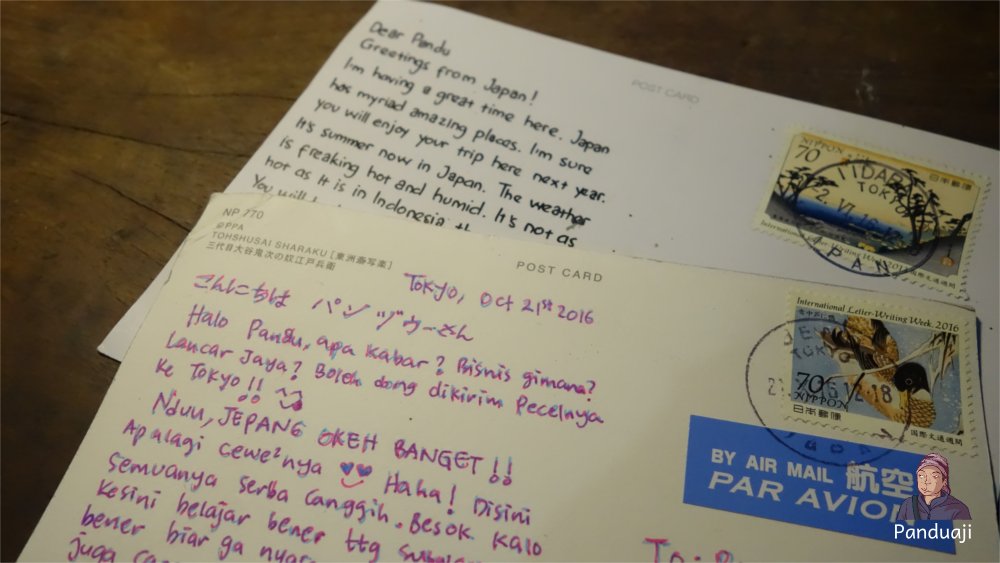 Dear Pandu
Greetings from Japan!
I'm having a great time here. Japan
has myriad amazing places. I'm sure
you will enjoy your trip here next year.
It's summer now in Japan. The weather
is freaking hot and humid. It's not as
hot as it is in Indonesia
You will
POST CARD
NIPPON
70
日本郵便
International Letter-Writing Week 201
国際文通週間
IIDABA
TOKYO
JAPAN
NP 770
©PPA
TOHSHUSAI SHARAKU [東洲斎写楽]
三代目大谷鬼次の奴江戸兵衛
POST CARD
Tokyo, Oct 21st 2016
こんにちは パンヅゥーさん
Halo Pandu, apa kabar? Bisnis gimana?
Lancar Jaya? Boleh dong dikirim Pecelnya
Ke Tokyo!!
Nduu, JEPANG OKEH BANGET!!
Apalagi cewe²nya Haha! Disini
Semuanya serba canggih. Besok Kalo
Kesini belajar bener ttg
bener biar ga
juga
To:
International Letter-Writing Week 2016
70
NIPPON
日本郵便
国際文通週間
TOKYO
BY AIR MAIL 航空
PAR AVION
Panduaji